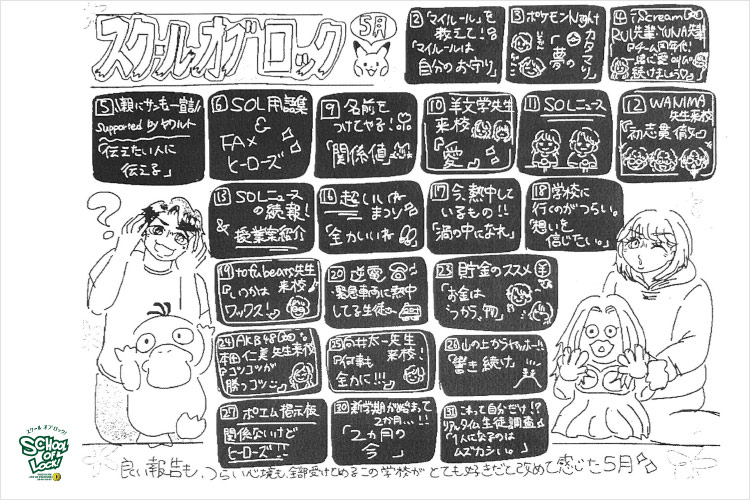 スクールオブロック
5月
2「マイルール」を
教えて!
「マイルールは
自分のお守り」
3 ポケモンNight
「夢の
カタマリ」
4 iScream
RUI先輩・YUNA先輩
続けましょう
5
supported by ヤクルト
「伝えたい人に
伝える」
6 SOL用語集
&
FAX
ヒーローズ
9 名前を
つけてやる!
「関係値」
10 羊文学先生
来校
「愛」
11 SOLニュース
12 WANIMA
先生来校
「初志貫徹」
13 SOLニュース
の続報!
& 授業案紹介
16 超いいね
まつり
「全力いいね」
17 今、熱中して
いるもの!!
「渦の中になれ」
18 学校に
行くのがつらい。
「想いを
信じたい。」
19 tofubeats先生
来校
「いつかは
ワックス!」
20 逆電
緊急車両に熱中
してる生徒
23 貯金のススメ
「お金は
つかう物」
24 AKB48
本田仁美先生来校
「コツコツが
勝つコツ」
25 向井太一先生
来校!
「何事も
全力に!!!」
26 山の上からヤッホー!!
「書き続け」
27 ポエム掲示板
関係ないけど
ヒーローズ!!
30 新学期が始まって
2か月...!!
「2ヵ月の
今」
31 これって自分だけ!?
リアルタイム生徒調査
「1人になるのは
ムズカシい。」
?
スクール オブ ロック!
SCHOOL
OF
LOCK!
良い報告も、つらい心境も、全部受けとめるこの学校が とても好きだと改めて感じた5月